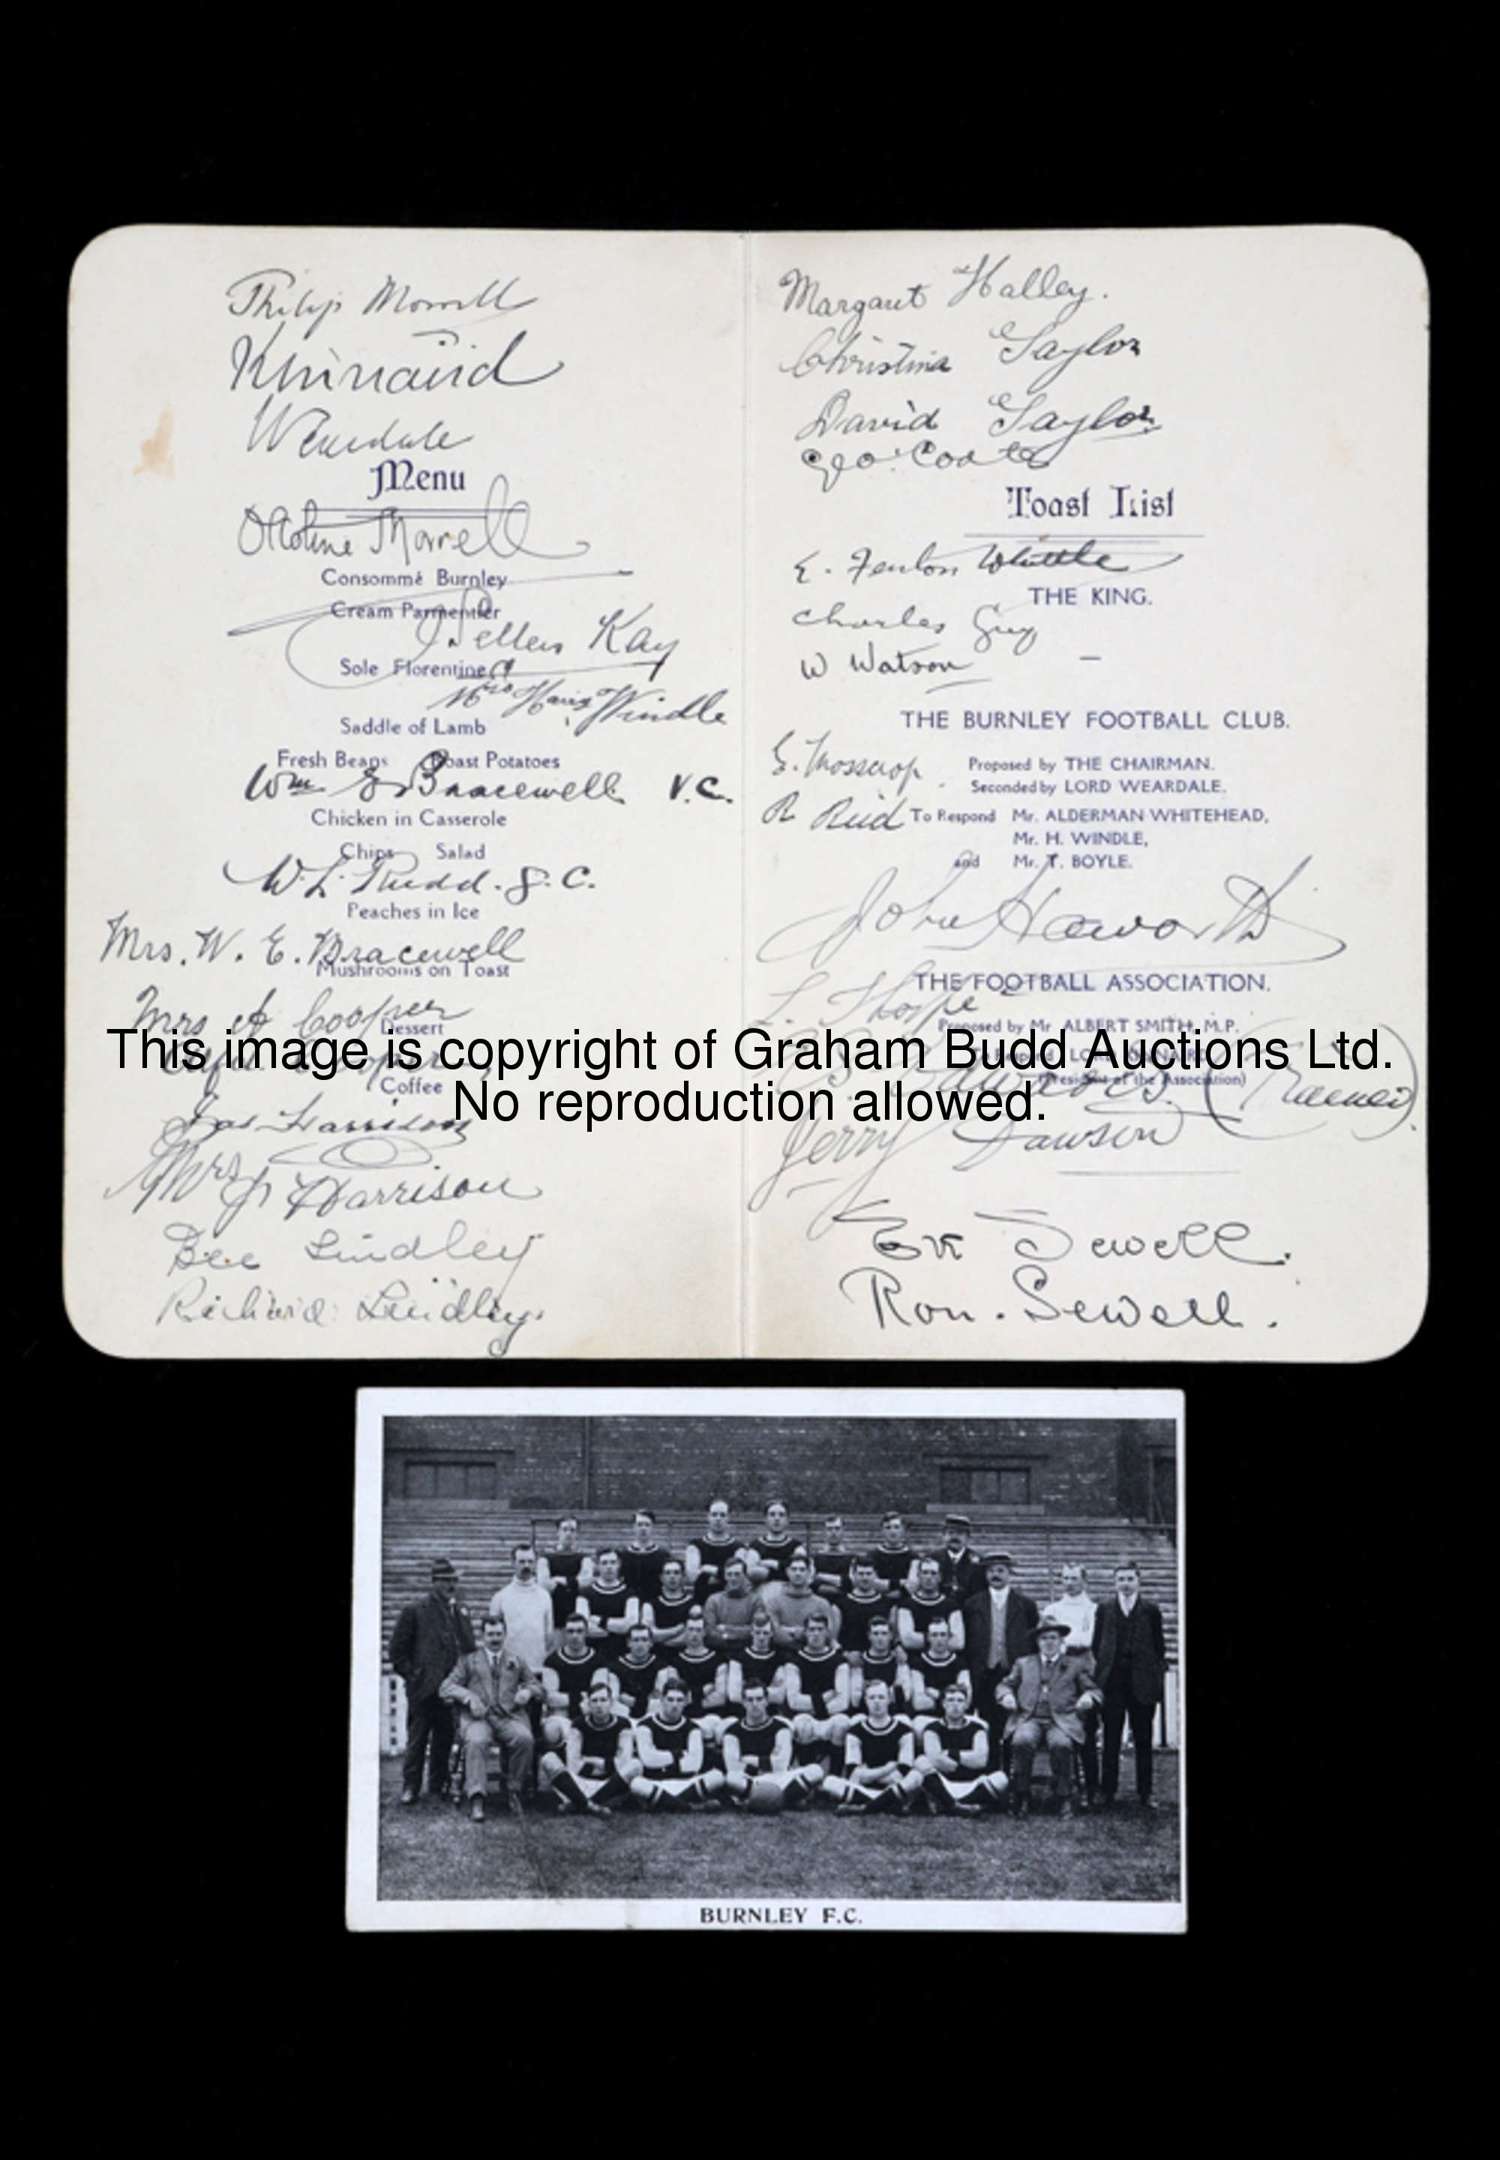 Philip Morrell
Kinnaird
Weardale
Menu
Ottoline Morrell
Consommé Burnley
Cream Parmentier
Sellers Kay
Sole Florentine
Mrs Harry Windle
Saddle of Lamb
Fresh Beans Roast Potatoes
Wm E Bracewell V.C.
Chicken in Casserole
Chips Salad
W. L. Rudd. J. C.
Peaches in Ice
Mrs. W. E. Bracewell
Mushrooms on Toast
Mrs A Cooper
Dessert
Cooper
Coffee
Jas Harrison
Mrs J Harrison
Bee Lindley
Richard Lindley.
Margaret Halley.
Christina Taylor
David Taylor
Geo. Coates
Toast List
E. Fenton Whittle
THE KING.
Charles Guy
W Watson
THE BURNLEY FOOTBALL CLUB.
E. Mosscrop
Proposed by THE CHAIRMAN.
Seconded by LORD WEARDALE.
R Reid
To Respond Mr. ALDERMAN WHITEHEAD,
Mr. H. WINDLE,
and Mr. T. BOYLE.
John Haworth
THE FOOTBALL ASSOCIATION.
L. Thorpe
Proposed by Mr. ALBERT SMITH, M.P.
To Respond LORD KINNAIRD
(President of the Association)
Edwards. (Trainer).
Jerry Dawson
Sewell.
Ron. Sewell.
This image is copyright of Graham Budd Auctions Ltd.
No reproduction allowed.
BURNLEY F.C.